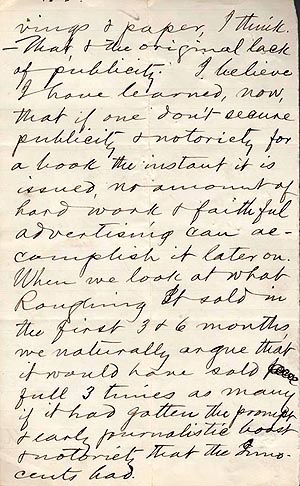 vings & paper, I think.
— That, & the original lack
of publicity. I believe
I have learned, now,
that if one don't secure
publicity & notoriety for
a book the instant it is
issued, no amount of
hard work & faithful
advertising can ac-
complish it later on.
When we look at what
Roughing It sold in
the first 3 & 6 months,
we naturally argue that
it would have sold
full 3 times as many
if it had gotten the prompt
& early journalistic boost
& notoriety that the Inno-
cents had.